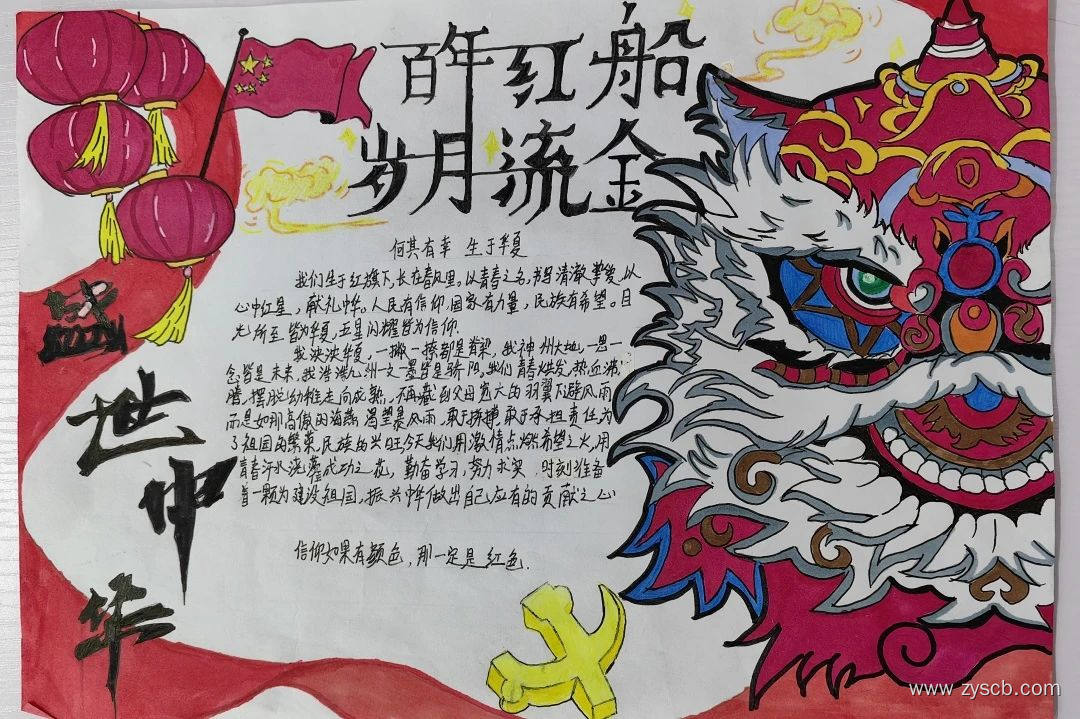 百年红船
岁月流金
何其有幸 生于华夏
我们生于红旗下,长在春风里。以青春之名,书写清澈挚爱,以
心中红星,献礼中华。人民有信仰,国家有力量,民族有希望。目
光所至皆为华夏,五星闪耀皆为信仰.
我泱泱华夏,一撇一捺都是脊梁,我神州大地,一思一
念皆是未来,我浩浩九州一文一墨皆是骄阳,我们青春焕发,热血沸
腾,摆脱幼稚走向成熟,不再藏到父母宽大的羽翼下避风雨
而是如那高傲的海燕渴望暴风雨,敢于拼搏,敢于承担责任,为
了祖国的繁荣,民族的兴旺,今天我们用激情点燃希望之火,用
青春汗水浇灌成功之花,勤奋学习,努力求实,时刻准备
着一颗为建设祖国,振兴中华做出自己应有的贡献之心
信仰如果有颜色,那一定是红色.
盛
世
中
华
www.zyscb.com